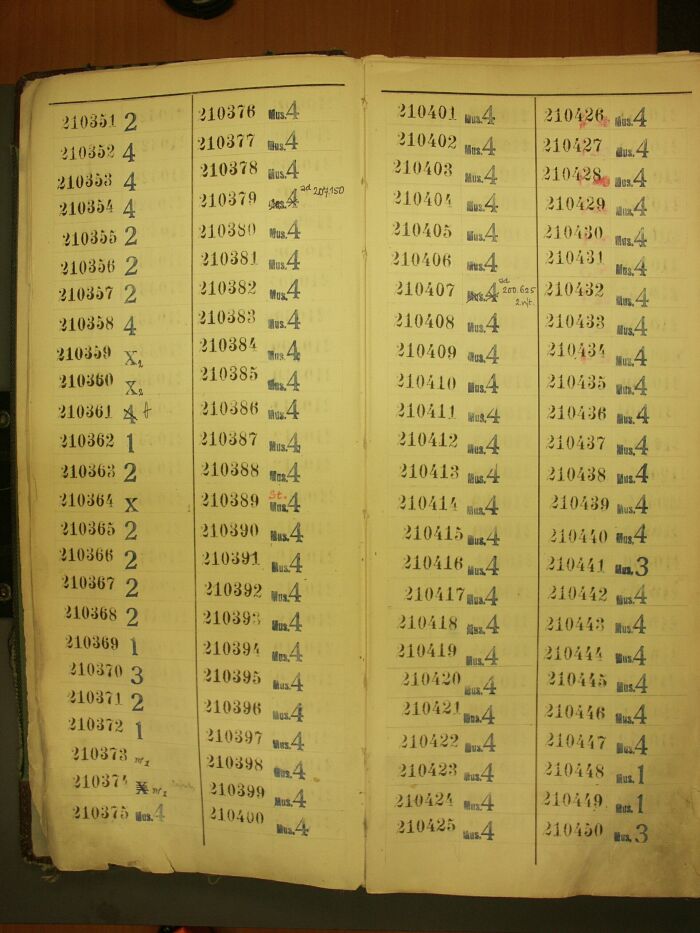 210351 2
210352 4
210353 4
210354 4
210355 2
210356 2
210357 2
210358 4
210359 X2
210360 X2
210361 4
210362 1
210363 2
210364 X
210365 2
210366 2
210367 2
210368 2
210369 1
210370 3
210371 2
210372 1
210373
210374 X
210375 Mus. 4
210376 Mus. 4
210377 Mus. 4
210378 Mus. 4
210379 Mus. 4 ad 207.150
210380 Mus. 4
210381 Mus. 4
210382 Mus. 4
210383 Mus. 4
210384 Mus. 4
210385 Mus. 4
210386 Mus. 4
210387 Mus. 4
210388 Mus. 4
St.
210389 Mus. 4
210390 Mus. 4
210391 Mus. 4
210392 Mus. 4
210393 Mus. 4
210394 Mus. 4
210395 Mus. 4
210396 Mus. 4
210397 Mus. 4
210398 Mus. 4
210399 Mus. 4
210400 Mus. 4
210401 Mus. 4
210402 Mus. 4
210403 Mus. 4
210404 Mus. 4
210405 Mus. 4
210406 Mus. 4
210407 Mus. 4 ad 200.625
210408 Mus. 4
210409 Mus. 4
210410 Mus. 4
210411 Mus. 4
210412 Mus. 4
210413 Mus. 4
210414 Mus. 4
210415 Mus. 4
210416 Mus. 4
210417 Mus. 4
210418 Mus. 4
210419 Mus. 4
210420 Mus. 4
210421 Mus. 4
210422 Mus. 4
210423 Mus. 4
210424 Mus. 4
210425 Mus. 4
210426 Mus. 4
210427 Mus. 4
210428 Mus. 4
210429 Mus. 4
210430 Mus. 4
210431 Mus. 4
210432 Mus. 4
210433 Mus. 4
210434 Mus. 4
210435 Mus. 4
210436 Mus. 4
210437 Mus. 4
210438 Mus. 4
210439 Mus. 4
210440 Mus. 4
210441 Mus. 3
210442 Mus. 4
210443 Mus. 4
210444 Mus. 4
210445 Mus. 4
210446 Mus. 4
210447 Mus. 4
210448 Mus. 1
210449 Mus. 1
210450 Mus. 3